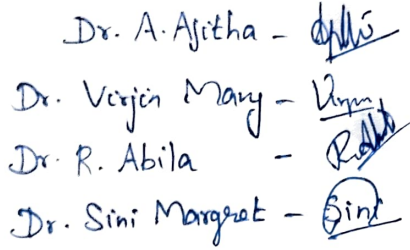 Dr. A. Ajitha -
Dr. Virjin Mary -
Dr. R. Abila -
Dr. Sini Margret - Sini